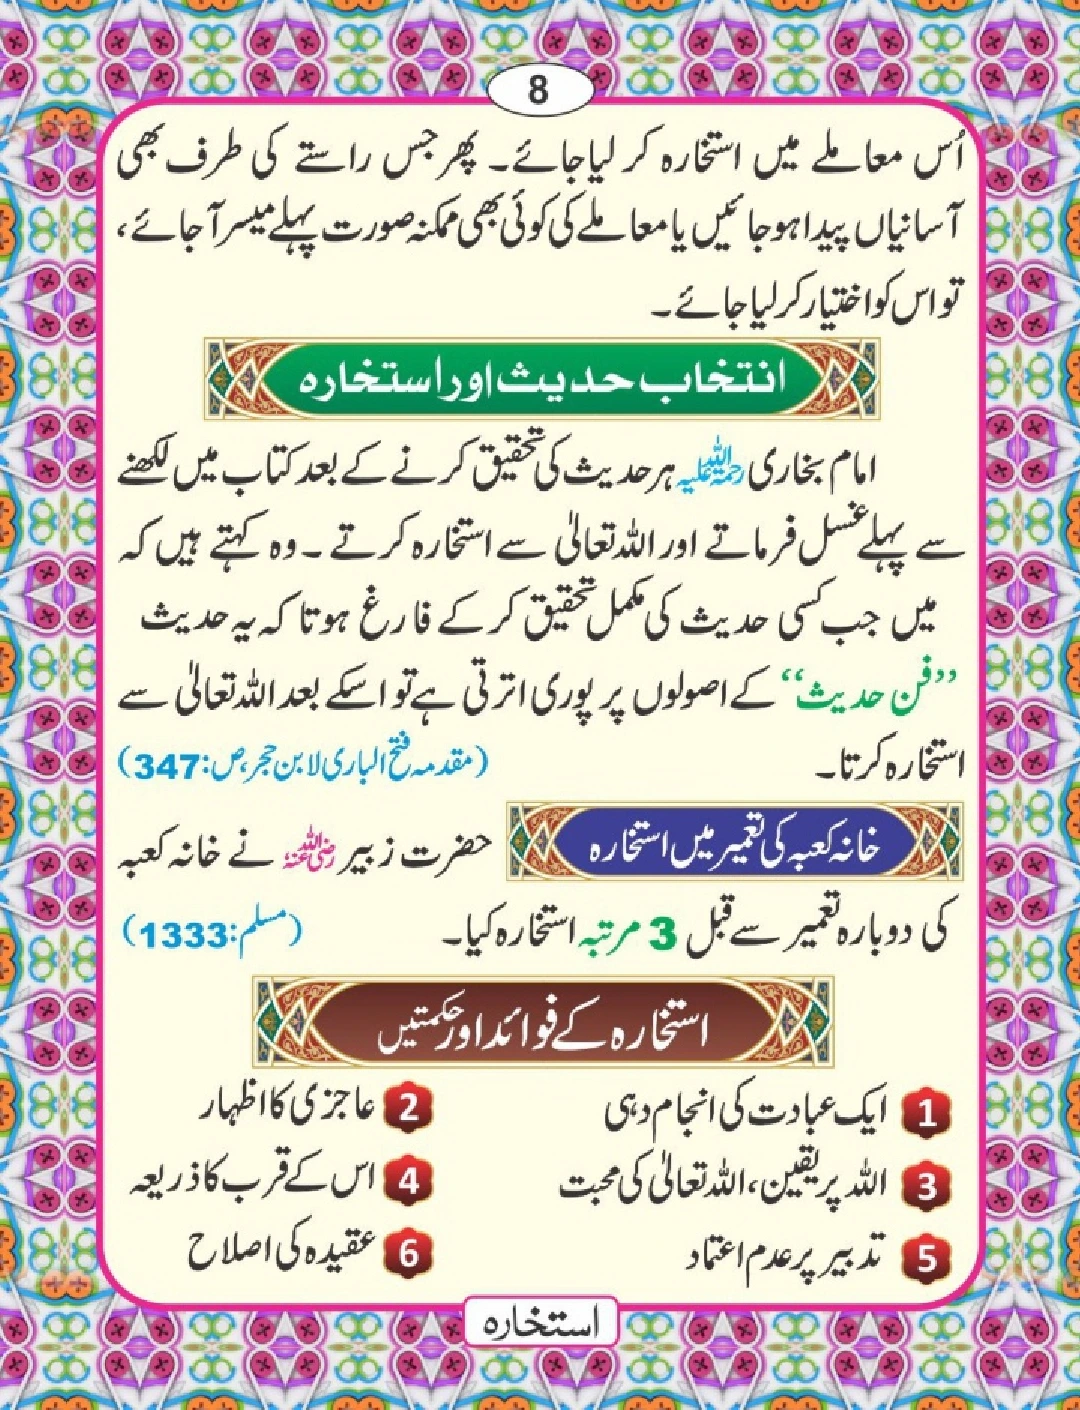 8
اُس معاملے میں استخارہ کر لیا جائے۔ پھر جس راستے کی طرف بھی
آسانیاں پیدا ہو جائیں یا معاملے کی کوئی بھی ممکنہ صورت پہلے میسر آجائے،
تو اس کو اختیار کر لیا جائے۔
انتخاب حدیث اور استخارہ
امام بخاری رحمۃ اللہ علیہ ہر حدیث کی تحقیق کرنے کے بعد کتاب میں لکھنے
سے پہلے غسل فرماتے اور اللہ تعالیٰ سے استخارہ کرتے ۔ وہ کہتے ہیں کہ
میں جب کسی حدیث کی مکمل تحقیق کر کے فارغ ہوتا کہ یہ حدیث
”فن حدیث“ کے اصولوں پر پوری اترتی ہے تو اسکے بعد اللہ تعالیٰ سے
استخارہ کرتا۔ (مقدمہ فتح الباری لابن حجر، ص:347)
خانہ کعبہ کی تعمیر میں استخارہ حضرت زبیر رضی اللہ عنہ نے خانہ کعبہ
کی دوبارہ تعمیر سے قبل 3 مرتبہ استخارہ کیا۔ (مسلم:1333)
استخارہ کے فوائد اور حکمتیں
1 ایک عبادت کی انجام دہی
2 عاجزی کا اظہار
3 اللہ پر یقین، اللہ تعالیٰ کی محبت
4 اس کے قرب کا ذریعہ
5 تدبیر پر عدم اعتماد
6 عقیدہ کی اصلاح
استخارہ